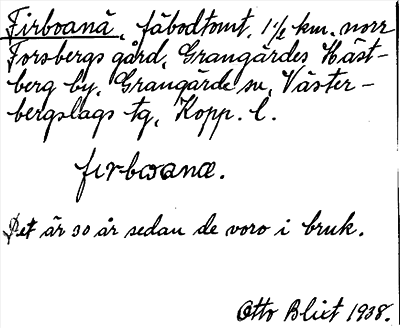 Firboanä, fäbodtomt, 1½ km. norr
Forsbergs gård, Grangärdes Häst-
berg by, Grangärde sn, Väster-
bergslags tg, Kopp. l.
firboanæ.
Det är 30 år sedan de voro i bruk.
Otto Blixt 1938.